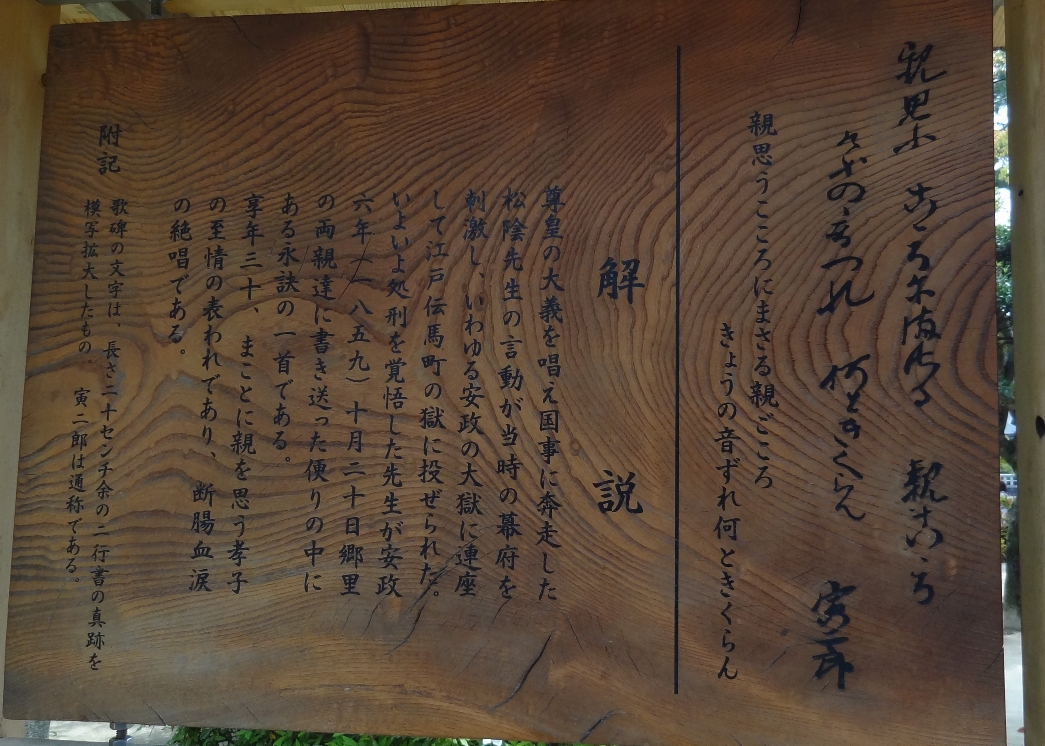 親思ふ こころにまさる 親ごころ
けふの音つれ 何ときくらん 寅二郎
親思うこころにまさる親ごころ
きょうの音ずれ何ときくらん
解説
尊皇の大義を唱え国事に奔走した
松陰先生の言動が当時の幕府を
刺激し、いわゆる安政の大獄に連座
して江戸伝馬町の獄に投ぜられた。
いよいよ処刑を覚悟した先生が安政
六年(一八五九)十月二十日郷里
の両親達に書き送った便りの中に
ある永訣の一首である。
享年三十、まことに親を思う孝子
の至情の表われであり、断腸血涙
の絶唱である。
附記
歌碑の文字は、長さ二十センチ余の二行書の真跡を
模写拡大したもの 寅二郎は通称である。